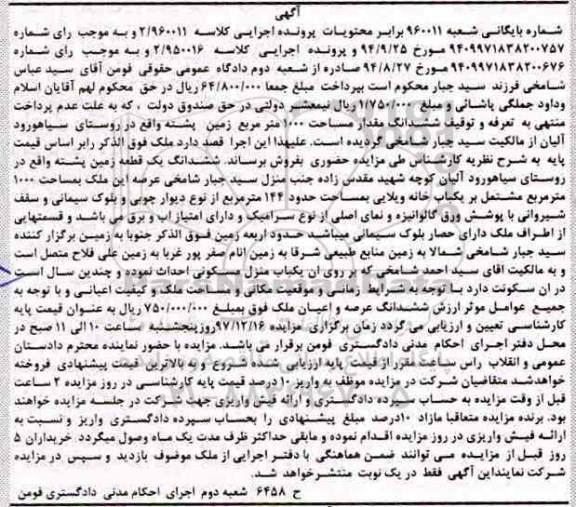 آگهی
شماره بایگانی شعبه ۹۶۰۰۱۱ برابر محتویات پرونده اجرایی کلاسه ۲/۹۶۰۰۱۱ و به موجب رای شماره
۹۴۰۹۹۷۱۸۳۸۲۰۰۷۵۷ مورخ ۹۴/۹/۲۵ و پرونده اجرایی کلاسه ۲/۹۵۰۰۱۶ و به موجب رای شماره
۹۴۰۹۹۷۱۸۳۸۲۰۰۶۷۶ مورخ ۹۴/۸/۲۷ صادره از شعبه دوم دادگاه عمومی حقوقی فومن آقای سید عباس
شامخی فرزند سید جبار محکوم است بپرداخت مبلغ جمعا ۶۴/۸۰۰/۰۰۰ ریال در حق محکوم لهم آقایان اسلام
وداود جملگی پاشائی و مبلغ ۱/۷۵۰/۰۰۰ ریال نیمعشر دولتی در حق صندوق دولت ، که به علت عدم پرداخت
منتهی به تعرفه و توقیف ششدانگ مقدار مساحت ۱۰۰۰ متر مربع زمین پشته واقع در روستای سیاهورود
آلیان از مالکیت سید جبار شامخی گردیده است. علیهذا این اجرا قصد دارد ملک فوق الذکر رابر اساس قیمت
پایه به شرح نظریه کارشناس طی مزایده حضوری بفروش برساند. ششدانگ یک قطعه زمین پشته واقع در
روستای سیاهورود آلیان کوچه شهید مقدس زاده جنب منزل سید جبار شامخی عرصه این ملک بمساحت ۱۰۰۰
مترمربع مشتمل بر یکباب خانه ویلایی بمساحت حدود ۱۴۴ مترمربع از نوع دیوار چوبی و بلوک سیمانی و سقف
شیروانی با پوشش ورق گالوانیزه و نمای اصلی از نوع سرامیک و دارای امتیاز اب و برق می باشد و قسمتهایی
از اطراف ملک دارای حصار بلوک سیمانی میباشد حدود اربعه زمین فوق الذکر جنوبا به زمین برگزار کننده
سید جبار شامخی شمالا به زمین منابع طبیعی شرقا به زمین انام صفر پور غربا به زمین علی فلاح متصل است
و به مالکیت اقای سید احمد شامخی که بر روی ان یکباب منزل مسکونی احداث نموده و چندین سال است
در ان سکونت دارد با توجه به شرایط زمانی و موقعیت مکانی و مساحت ملک و کیفیت اعیانی و با توجه به
جمیع عوامل موثر ارزش ششدانگ عرصه و اعیان ملک فوق بمبلغ ۷۵۰/۰۰۰/۰۰۰ ریال به عنوان قیمت پایه
کارشناسی تعیین و ارزیابی می گردد زمان برگزاری مزایده ۹۷/۱۲/۱۶ روزپنجشنبه ساعت ۱۰ الی ۱۱ صبح در
محل دفتر اجرای احکام مدنی دادگستری فومن برقرار می باشد. مزایده با حضور نماینده محترم دادستان
عمومی و انقلاب راس ساعت مقرر از قیمت پایه ارزیابی شده شروع و به بالاترین قیمت پیشنهادی فروخته
خواهدشد متقاضیان شرکت در مزایده موظف به واریز ۱۰ درصد قیمت پایه کارشناسی در روز مزایده ۲ ساعت
قبل از وقت مزایده به حساب سپرده دادگستری و ارائه فیش واریزی جهت شرکت در جلسه مزایده خواهند
بود. برنده مزایده متعاقبا مازاد ۱۰درصد مبلغ پیشنهادی را بحساب سپرده دادگستری واریز و نسبت به
ارائه فیش واریزی در روز مزایده اقدام نموده و مابقی حداکثر ظرف مدت یک ماه وصول میگردد خریداران ۵
روز قبل از مزایده می توانند ضمن هماهنگی با دفتر اجرایی از ملک موضوف بازدید و سپس در مزایده
شرکت نمایند‌این آگهی فقط در یک نوبت منتشر خواهد شد.
ح ۶۴۵۸ شعبه دوم اجرای احکام مدنی دادگستری فومن